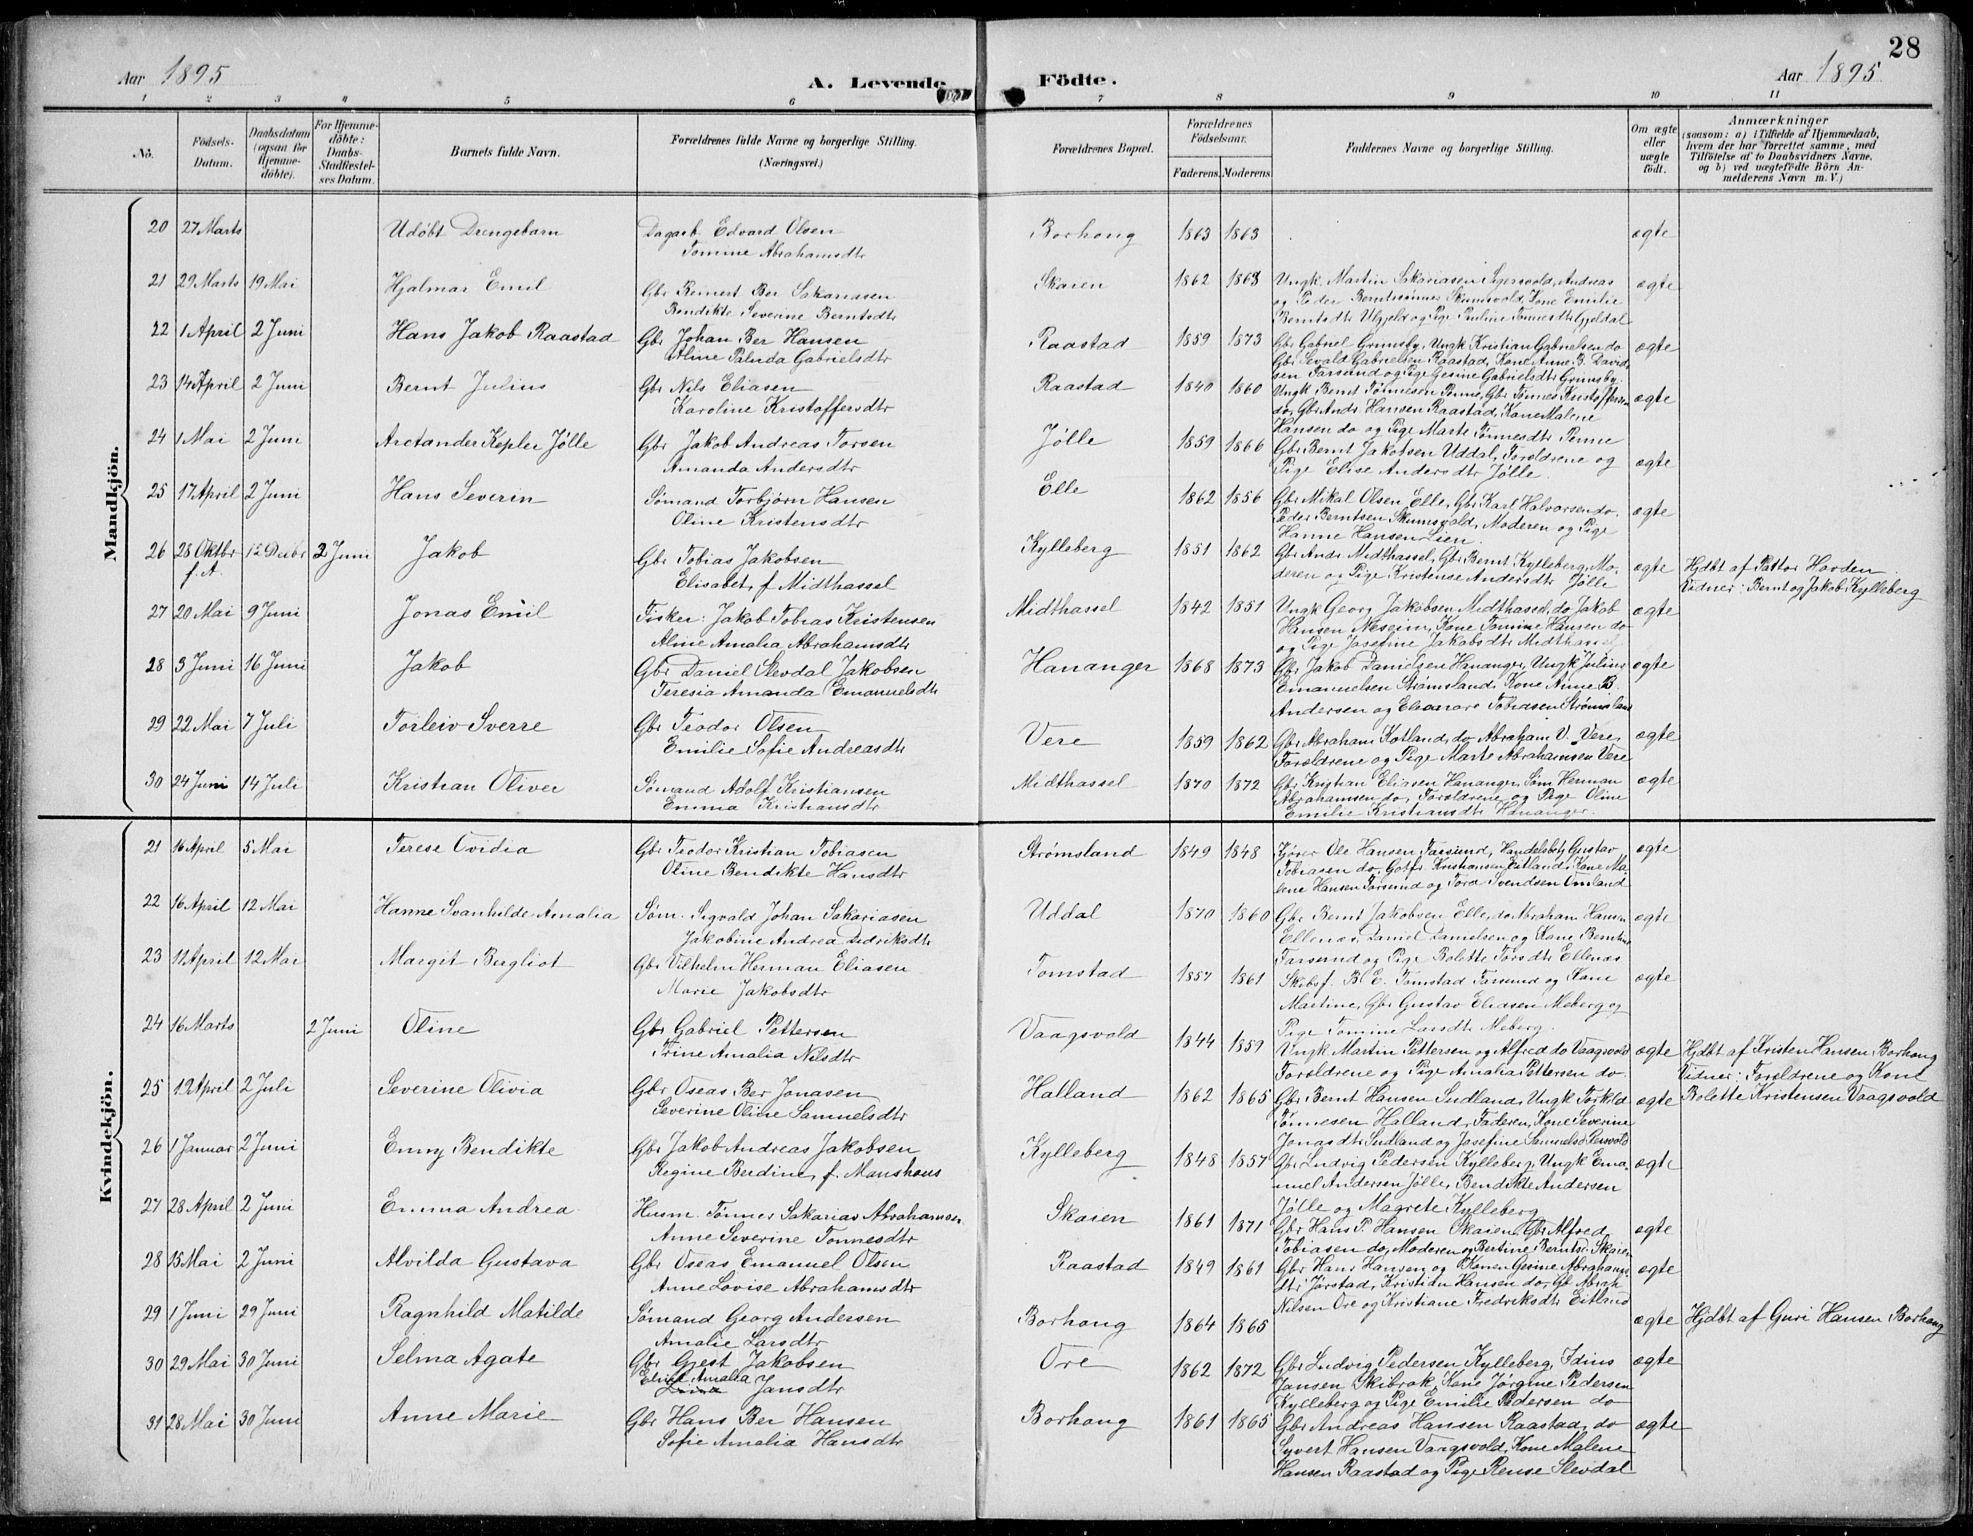 28
Aar 1895
A. Levende
Födte.
Aar 1895
1 2 3 4 5 6 7 8 9 10 11
No.
Födsels-Datum.
Daabsdatum (ogsaa for Hjemme-döbte).
For Hjemme-döbte: Daabs-Stadfæstelses Datum.
Barnets fulde Navn.
Forældrenes fulde Navne og borgerlige Stilling. (Næringsvei.)
Forældrenes Bopæl.
Forældrenes Födselsaar.
Faderens. Moderens.
Faddernes Navne og borgerlige Stilling.
Om ægte eller uægte födt.
Anmærkninger
(saasom: a) i Tilfælde af Hjemmedaab, hvem der har forrettet samme, med Tilföielse af to Daabsvidners Navne, og b) ved uægtefödte Börn Anmelderens Navn m. V.)
Mandkjön.
20 27 Marts Udøbt Drengebarn Dagarb. Edvard Olsen Borhaug 1863 1863 ægte
Tomine Abrahamsdtr
21 29 Marts 19 Mai Hjalmar Emil Gbr Bernert Ber Sakariasen Skaien 1862 1863 Ungk. Martin Sakariasen Sigersvold, Andreas ægte
Bendikte Severine Berntsdtr og Peder Berntsønner Skumsvold, Kone Emilie
Berntsdtr Ulgjeld og Pige Pauline Tønnesdtr Gjeldal
22 1 April 2 Juni Hans Jakob Raastad Gbr Johan Ber Hansen Raastad 1859 1873 Gbr Gabriel Grimsby, Ungk Kristian Gabrielsen do ægte
Aline Palnda Gabrielsdtr Gbr Sevald Gabrielsen Raastad, Kone Anne B. David-
sen Farsund og Pige Gesine Gabrielsdtr Grimsby.
23 14 April 2 Juni Bernt Julius Gbr Nils Eliasen Raastad 1840 1860 Ungk Bernt Tønnesen Penne, Gbr Tønnes Kristoffersen ægte
Karoline Kristoffersdtr do, Gbr Andr Hansen Raastad, Kone Malene
Hansen do og Pige Marte Tønnesdtr Penne
24 1 Mai 2 Juni Arctander Kepler Jølle Gbr Jakob Andreas Torsen Jølle 1859 1866 Gbr Bernt Jakobsen Uddal, Forældrene og ægte
Amanda Andersdtr Pige Elise Andersdtr Jølle.
25 17 April 2 Juni Hans Severin Sømand Torbjørn Hansen Elle 1862 1856 Gbr Mikal Olsen Elle, Gbr Karl Halvorsen do, ægte
Oline Kristensdtr Peder Berntsen Skumsvold, Moderen og Pige
Hanne Hansen Lien.
26 28 Oktbr f.A. 12 Decbr 2 Juni Jakob Gbr Tobias Jakobsen Kylleberg 1851 1862 Gbr Andr Midthassel, Gbr Bernt Kylleberg, Mo- ægte Hjdbt af Pastor Horden
Elisabet, f Midthassel deren og Pige Kristense Andersdtr Jølle Vidner: Bernt og Jakob Kylleberg
27 20 Mai 9 Juni Jonas Emil Fisker: Jakob Tobias Kristensen Midthassel 1842 1851 Ungk Georg Jakobsen Midthassel, do Jakob ægte
Aline Amalia Abrahamsdtr Hansen Neseim, Kone Tomine Hansen do
og Pige Josefine Jakobsdtr Midthassel
28 3 Juni 16 Juni Jakob Gbr Daniel Slevdal Jakobsen Hananger 1868 1873 Gbr Jakob Danielsen Hananger, Ungk Julius ægte
Teresia Amanda Emanuelsdtr Emanuelsen Strømsland, Kone Anne B.
Andersen og Eleonore Tobiasen Strømsland
29 22 Mai 7 Juli Torleiv Sverre Gbr Teodor Olsen Vere 1859 1862 Gbr Abraham Kotland, do Abraham V. Vere, ægte
Emilie Sofie Andreasdtr Forældrene og Pige Marte Abrahamsen Vere
30 24 Juni 14 Juli Kristian Oliver Sømand Adolf Kristiansen Midthassel 1870 1872 Gbr Kristian Eliasen Hananger, Søm Herman ægte
Emma Kristiansdtr Abrahamsen do, Forældrene og Pige Oline
Emilie Kristiansdtr Hananger.
Kvindekjön.
21 16 April 5 Mai Terese Ovidia Gbr Teodor Kristian Tobiasen Strømsland 1849 1848 Kjører Ole Hansen Farsund, Handelsbetj Gustav ægte
Oline Bendikte Hansdtr Tobiasen do, Gotfr Kristiansen Jutland, Kone Ma-
lene Hansen Farsund og Tord Svendsen Omland
22 16 April 12 Mai Hanne Svanhilde Amalia Søm. Sigvald Johan Sakariasen Uddal 1870 1860 Gbr Bernt Jakobsen Elle, do Abraham Hansen ægte
Jakobine Andrea Didriksdtr Ellenæs, Daniel Danielsen og Kone Berntine
Farsund og Pige Bolette Torsdtr Ellenæs
23 11 April 12 Mai Margit Bergliot Gbr Vilhelm Herman Eliasen Tomstad 1857 1861 Skibsf. B. E. Tomstad Farsund og Kone ægte
Marie Jakobsdtr Martine, Gbr Gustav Eliasen Meberg og
Pige Tomine Larsdtr Meberg.
24 16 Marts 2 Juni Oline Gbr Gabriel Pettersen Vaagsvold 1844 1859 Ungk Martin Pettersen og Alfred do Vaagsvold ægte Hjdbt af Kristen Hansen Borhaug
Trine Amalia Nilsdtr Forældrene og Pige Amalia Pettersen do. Vidner: Forældrene og Kone
Bolette Kristensen Vaagsvold
25 12 April 2 Juli Severine Olivia Gbr Oseas Ber Jonasen Halland 1862 1865 Gbr Bernt Hansen Sudland, Ungk Torkild ægte
Severine Oline Samuelsdtr Tønnesen Halland, Faderen, Kone Severine
Jonasdtr Sudland og Josefine Samuelsd.
26 1 Januar 2 Juni Enny Bendikte Gbr Jakob Andreas Jakobsen Kylleberg 1848 1857 Gbr Ludvig Pedersen Kylleberg, Ungk Ema- ægte
Regine Berdine, f. Maushaus nuel Andersen Jølle, Bendikte Andersen
Jølle og Magrete Kylleberg
27 28 April 2 Juni Emma Andrea Husm. Tønnes Sakarias Abrahamsen Skaien 1861 1871 Gbr Hans P. Hansen Skaien, Gbr Alfred ægte
Anne Severine Tønnesdtr Tobiasen do, Moderen og Bertine Berntsd. Skaien
28 15 Mai 2 Juni Alvilda Gustava Gbr Oseas Emanuel Olsen Raastad 1849 1861 Gbr Hans Hansen og Konen Gesine Abrahams- ægte
Anne Lovise Abrahamsdtr dtr Jørstad, Kristian Hansen do, Gbr Abrah
Nilsen Ore og Kristiane Fredriksdtr Eitland
29 1 Juni 29 Juni Ragnhild Matilde Sømand Georg Andersen Borhaug 1864 1865 ægte Hjdbt af Guri Hansen Borhaug
Amalie Larsdtr
30 29 Mai 30 Juni Selma Agate Gbr Gjest Jakobsen Ore 1862 1872 Gbr Ludvig Pedersen Kylleberg, Idius ægte
Eline Amalia Jansdtr Jansen Skibrak, Kone Jørgine Pedersen
Kylleberg og Pige Emilie Pedersen do
31 28 Mai 30 Juni Anne Marie Gbr Hans Ber Hansen Borhaug 1861 1865 Gbr Andreas Hansen Raastad, do ægte
Sofie Amalia Hansdtr Syvert Hansen Vaagsvold, Kone Malene
Hansen Raastad og Pige Rense Slevdal